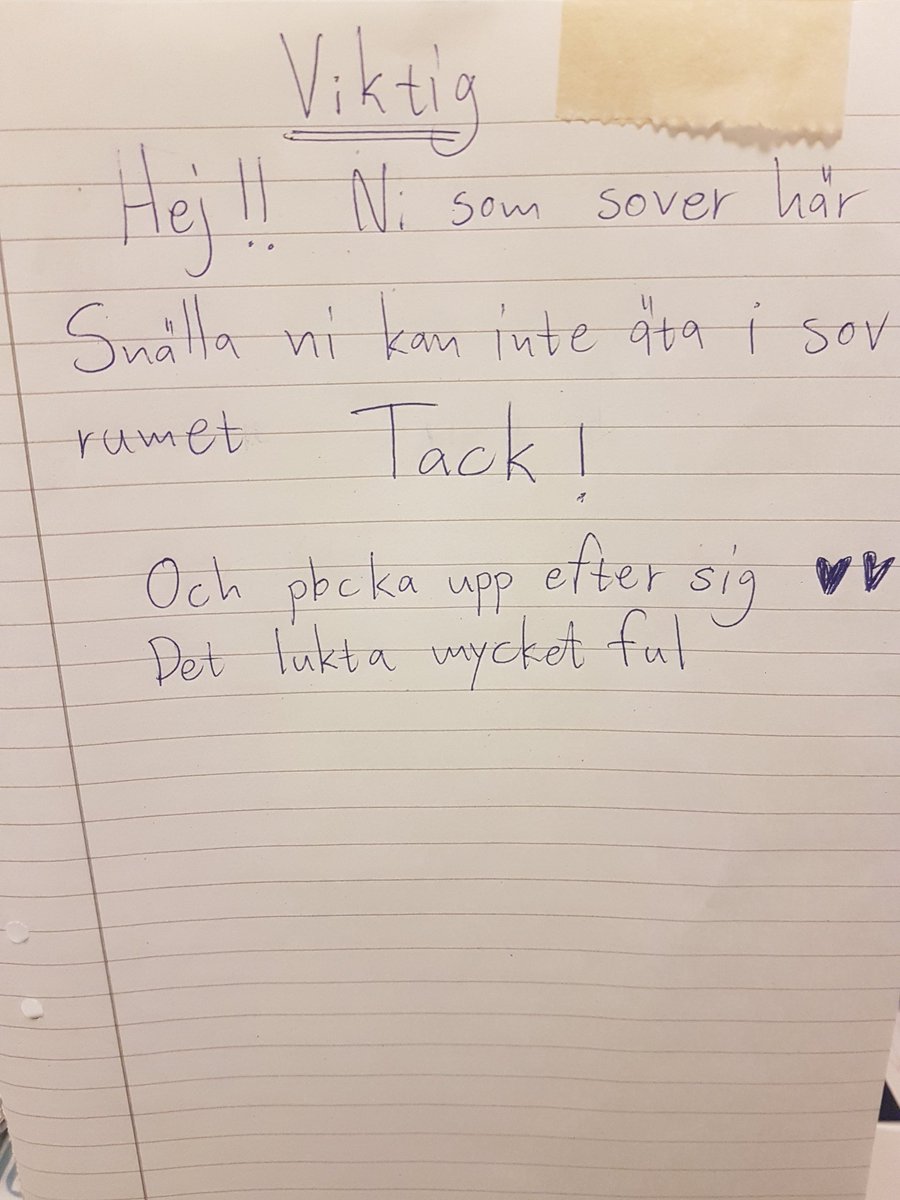 Viktig
Hej!! Ni som sover här
Snälla ni kan inte äta i sov
rumet Tack!
Och plocka upp efter sig ♥♥
Det lukta mycket ful